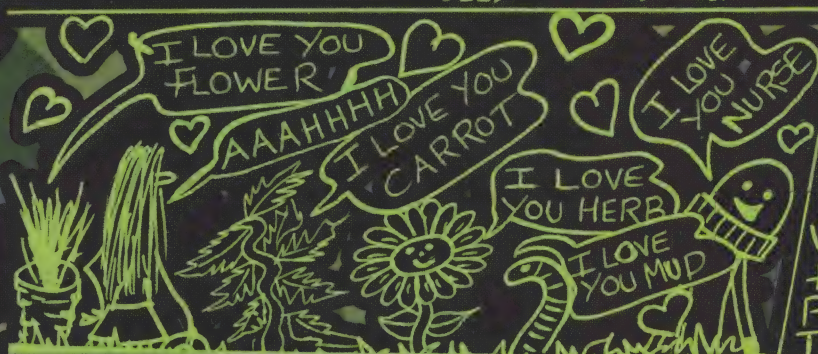 I LOVE YOU
FLOWER
AAAHHHH
I LOVE YOU
CARROT
I LOVE
YOU HERB
I LOVE
YOU MUD
I LOVE
YOU
NURSE